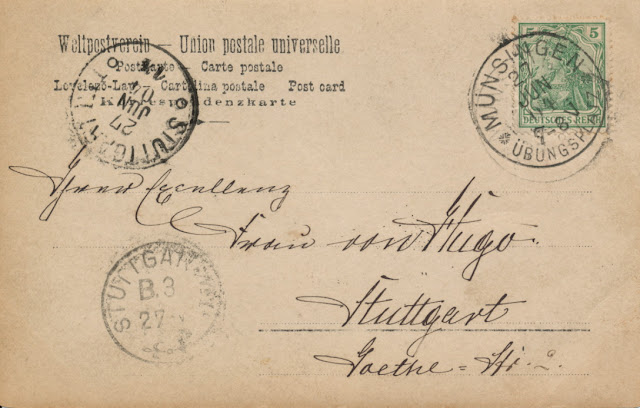 Weltpostverein — Union postale universelle
Postkarte — Carte postale
Levelező-Lap — Cartolina postale Post card
Korrespondenzkarte
STUTTGART
27
JUN
MÜNSINGEN
27
JUN
ÜBUNGSPL
5 5
DEUTSCHES REICH
Ihrer Excellenz
Frau von Hugo.
Stuttgart
Goethe=Str 2.
STUTTGART
B.3
27